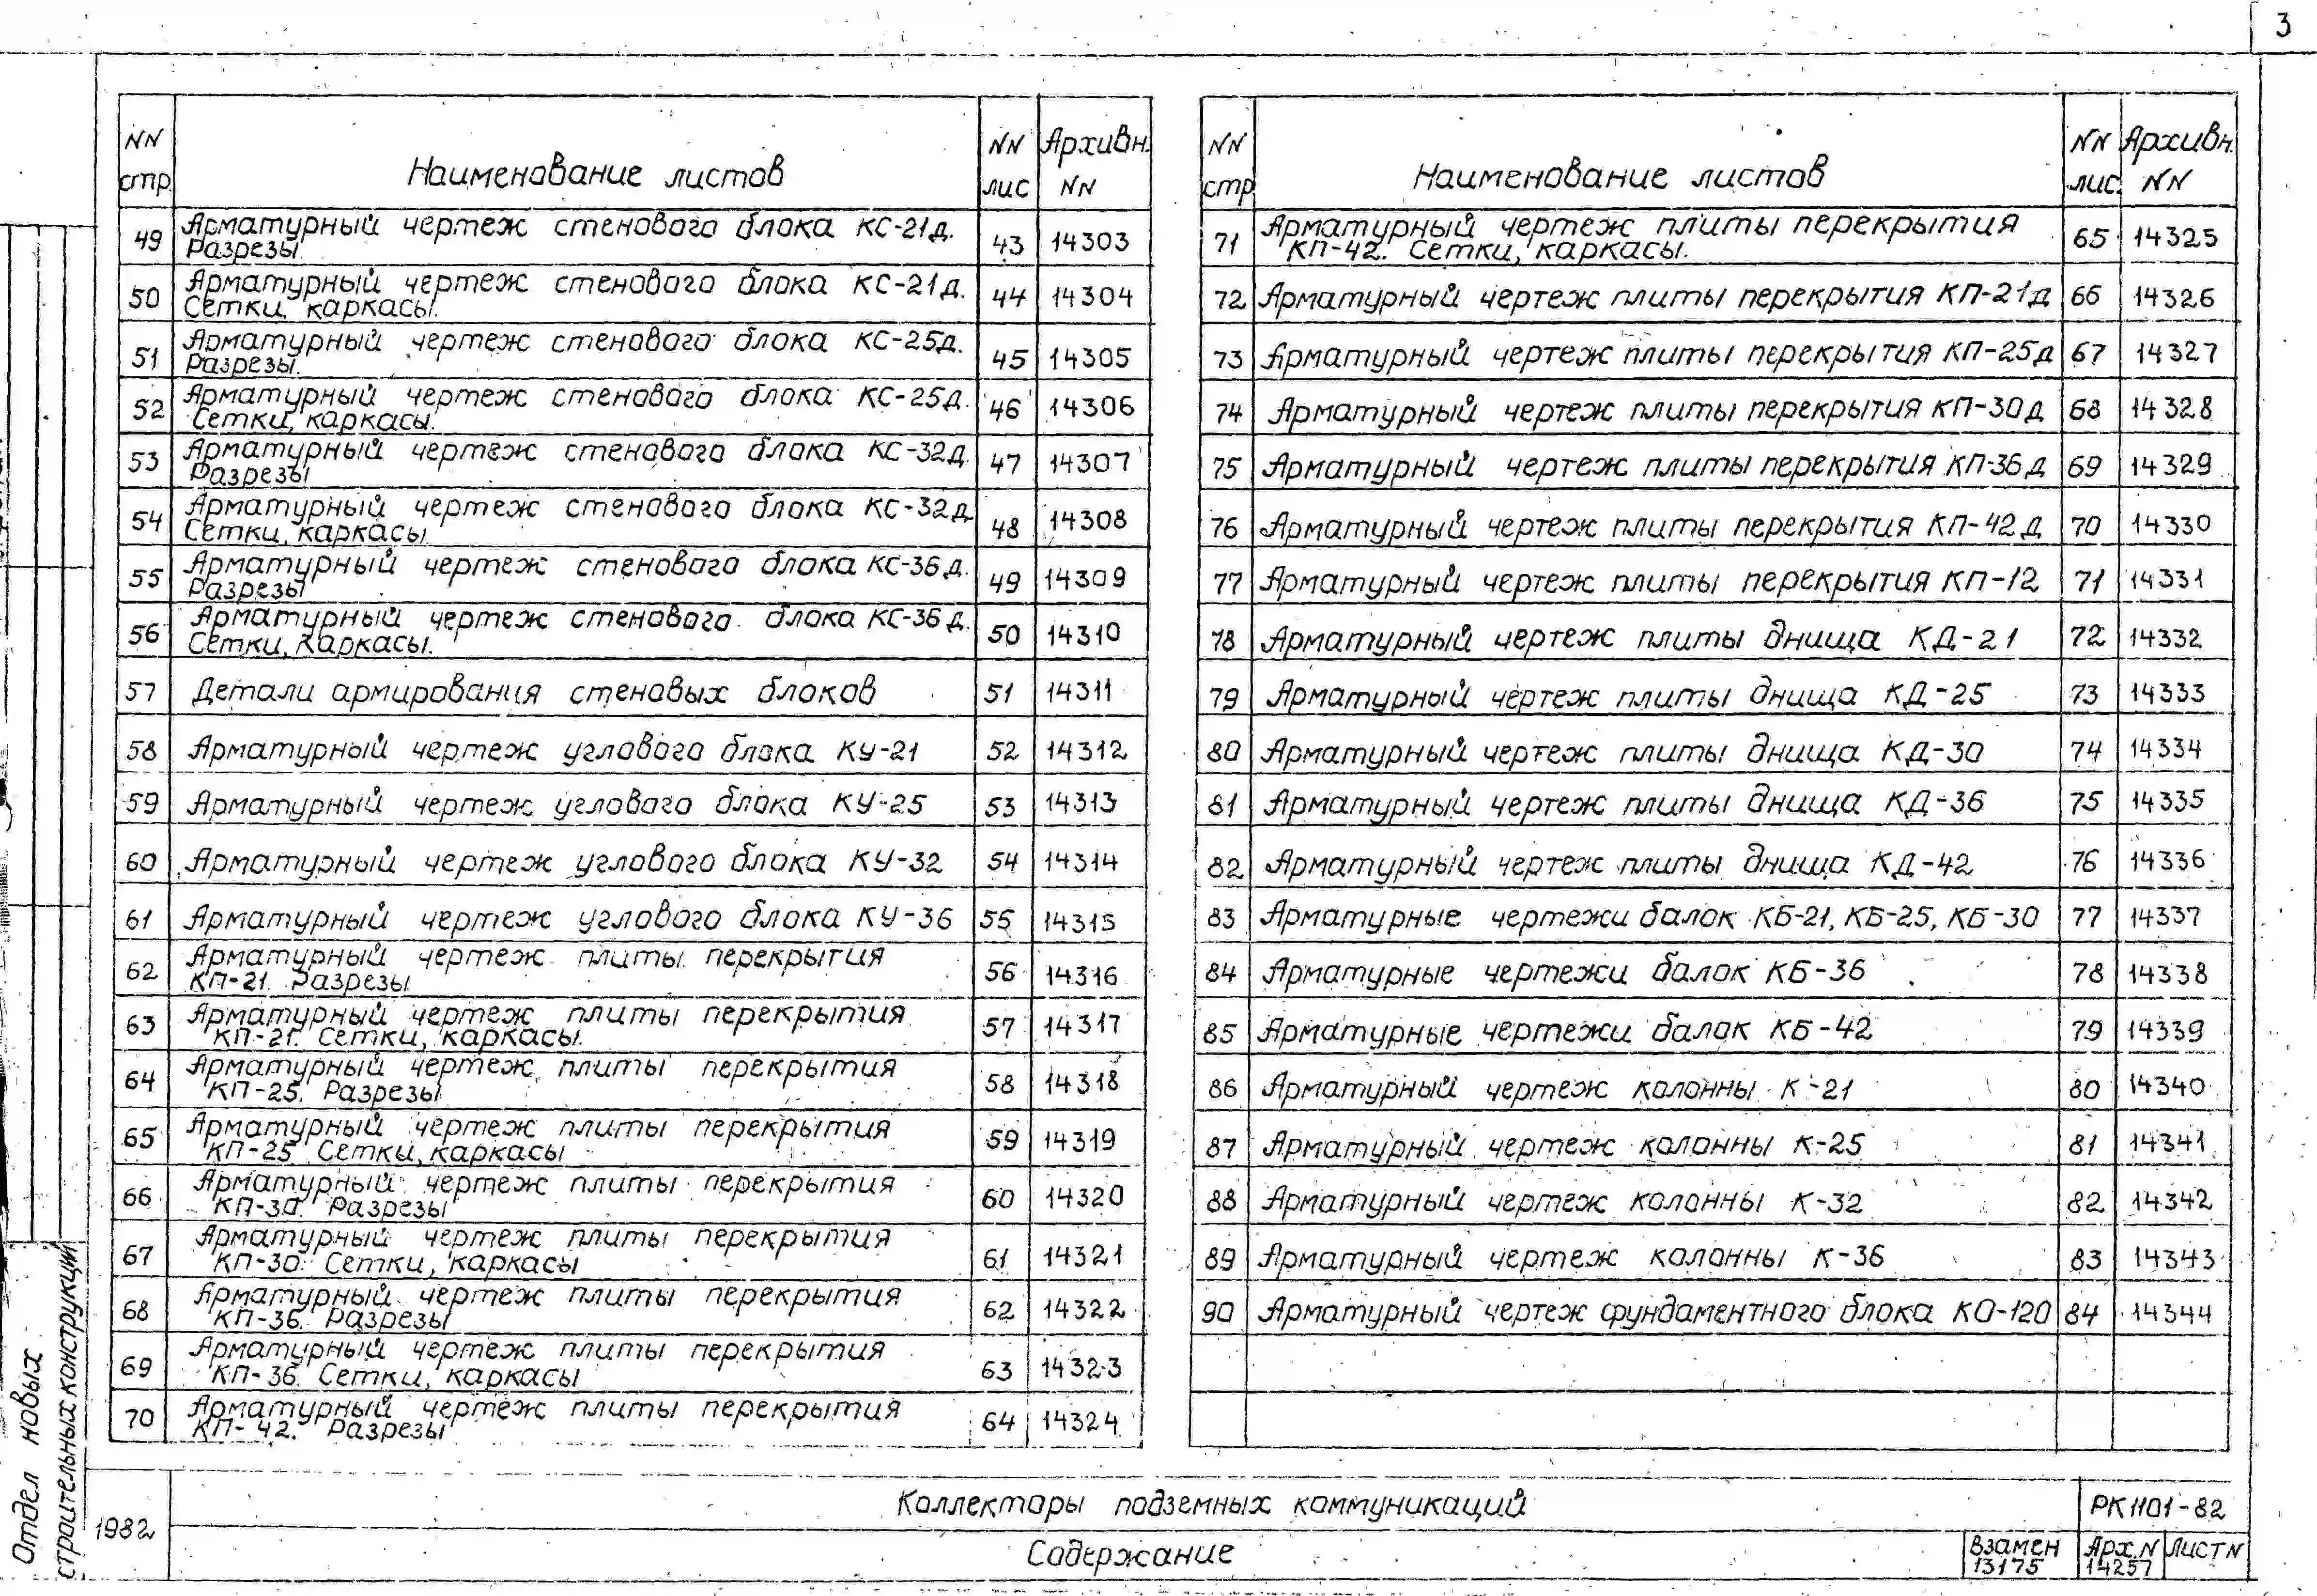 3
NN стр. Наименование листов NN лис Архивн. NN
49 Арматурный чертеж стенового блока КС-21д. Разрезы 43 14303
50 Арматурный чертеж стенового блока КС-21д. Сетки, каркасы. 44 14304
51 Арматурный чертеж стенового блока КС-25д. Разрезы. 45 14305
52 Арматурный чертеж стенового блока КС-25д. Сетки, каркасы. 46 14306
53 Арматурный чертеж стенового блока КС-32д. Разрезы 47 14307
54 Арматурный чертеж стенового блока КС-32д Сетки, каркасы 48 14308
55 Арматурный чертеж стенового блока КС-36д. Разрезы 49 14309
56 Арматурный чертеж стенового блока КС-36д. Сетки, каркасы. 50 14310
57 Детали армирования стеновых блоков 51 14311
58 Арматурный чертеж углового блока КУ-21 52 14312
59 Арматурный чертеж углового блока КУ-25 53 14313
60 Арматурный чертеж углового блока КУ-32 54 14314
61 Арматурный чертеж углового блока КУ-36 55 14315
62 Арматурный чертеж плиты перекрытия КП-21. Разрезы 56 14316
63 Арматурный чертеж плиты перекрытия КП-21. Сетки, каркасы. 57 14317
64 Арматурный чертеж плиты перекрытия КП-25. Разрезы 58 14318
65 Арматурный чертеж плиты перекрытия КП-25 Сетки, каркасы 59 14319
66 Арматурный чертеж плиты перекрытия КП-30. Разрезы 60 14320
67 Арматурный чертеж плиты перекрытия КП-30. Сетки, каркасы 61 14321
68 Арматурный чертеж плиты перекрытия КП-36. Разрезы 62 14322
69 Арматурный чертеж плиты перекрытия КП-36. Сетки, каркасы 63 14323
70 Арматурный чертеж плиты перекрытия КП-42. Разрезы 64 14324
NN стр Наименование листов NN лис. Архивн. NN
71 Арматурный чертеж плиты перекрытия КП-42. Сетки, каркасы. 65 14325
72 Арматурный чертеж плиты перекрытия КП-21д 66 14326
73 Арматурный чертеж плиты перекрытия КП-25д 67 14327
74 Арматурный чертеж плиты перекрытия КП-30д 68 14328
75 Арматурный чертеж плиты перекрытия КП-36д 69 14329
76 Арматурный чертеж плиты перекрытия КП-42д 70 14330
77 Арматурный чертеж плиты перекрытия КП-12 71 14331
78 Арматурный чертеж плиты днища КД-21 72 14332
79 Арматурный чертеж плиты днища КД-25 73 14333
80 Арматурный чертеж плиты днища КД-30 74 14334
81 Арматурный чертеж плиты днища КД-36 75 14335
82 Арматурный чертеж плиты днища КД-42 76 14336
83 Арматурные чертежи балок КБ-21, КБ-25, КБ-30 77 14337
84 Арматурные чертежи балок КБ-36 78 14338
85 Арматурные чертежи балок КБ-42 79 14339
86 Арматурный чертеж колонны К-21 80 14340
87 Арматурный чертеж колонны К-25 81 14341
88 Арматурный чертеж колонны К-32 82 14342
89 Арматурный чертеж колонны К-36 83 14343
90 Арматурный чертеж фундаментного блока КО-120 84 14344
Отдел новых
строительных конструкций
1982
Коллекторы подземных коммуникаций
РК 1101-82
Содержание
Взамен 13175
Арх.N 14257
Лист N